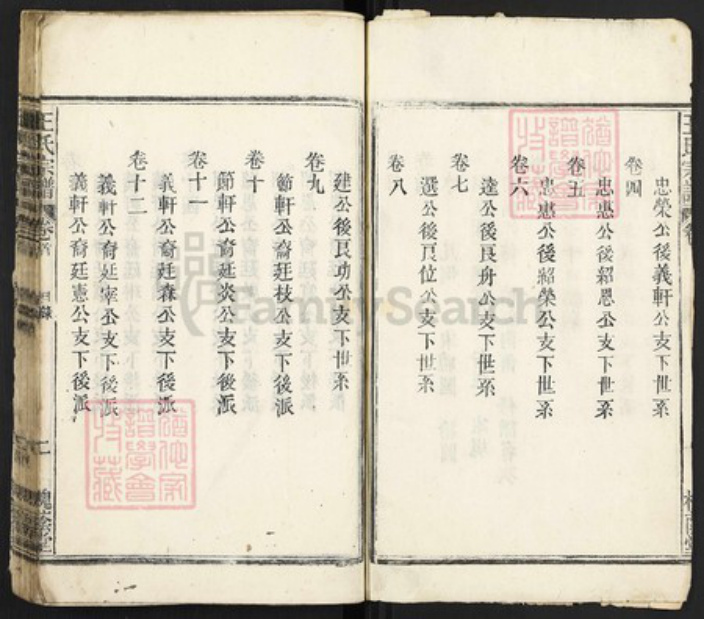 忠榮公後義軒公支下世系
卷四
忠惠公後紹恩公支下世系
卷五
忠惠公後紹榮公支下世系
卷六
達公後良舟公支下世系
卷七
選公後良位公支下世系
卷八
建公後良功公支下世系
卷九
節軒公裔廷枝公支下後派
卷十
節軒公裔廷炎公支下後派
卷十一
義軒公裔廷森公支下後派
卷十二
義軒公裔廷宰公支下後派
義軒公裔廷憲公支下後派
王氏宗譜
目錄
槐蔭堂
FamilySearch
猶他家譜學會特藏
猶他家譜學會特藏